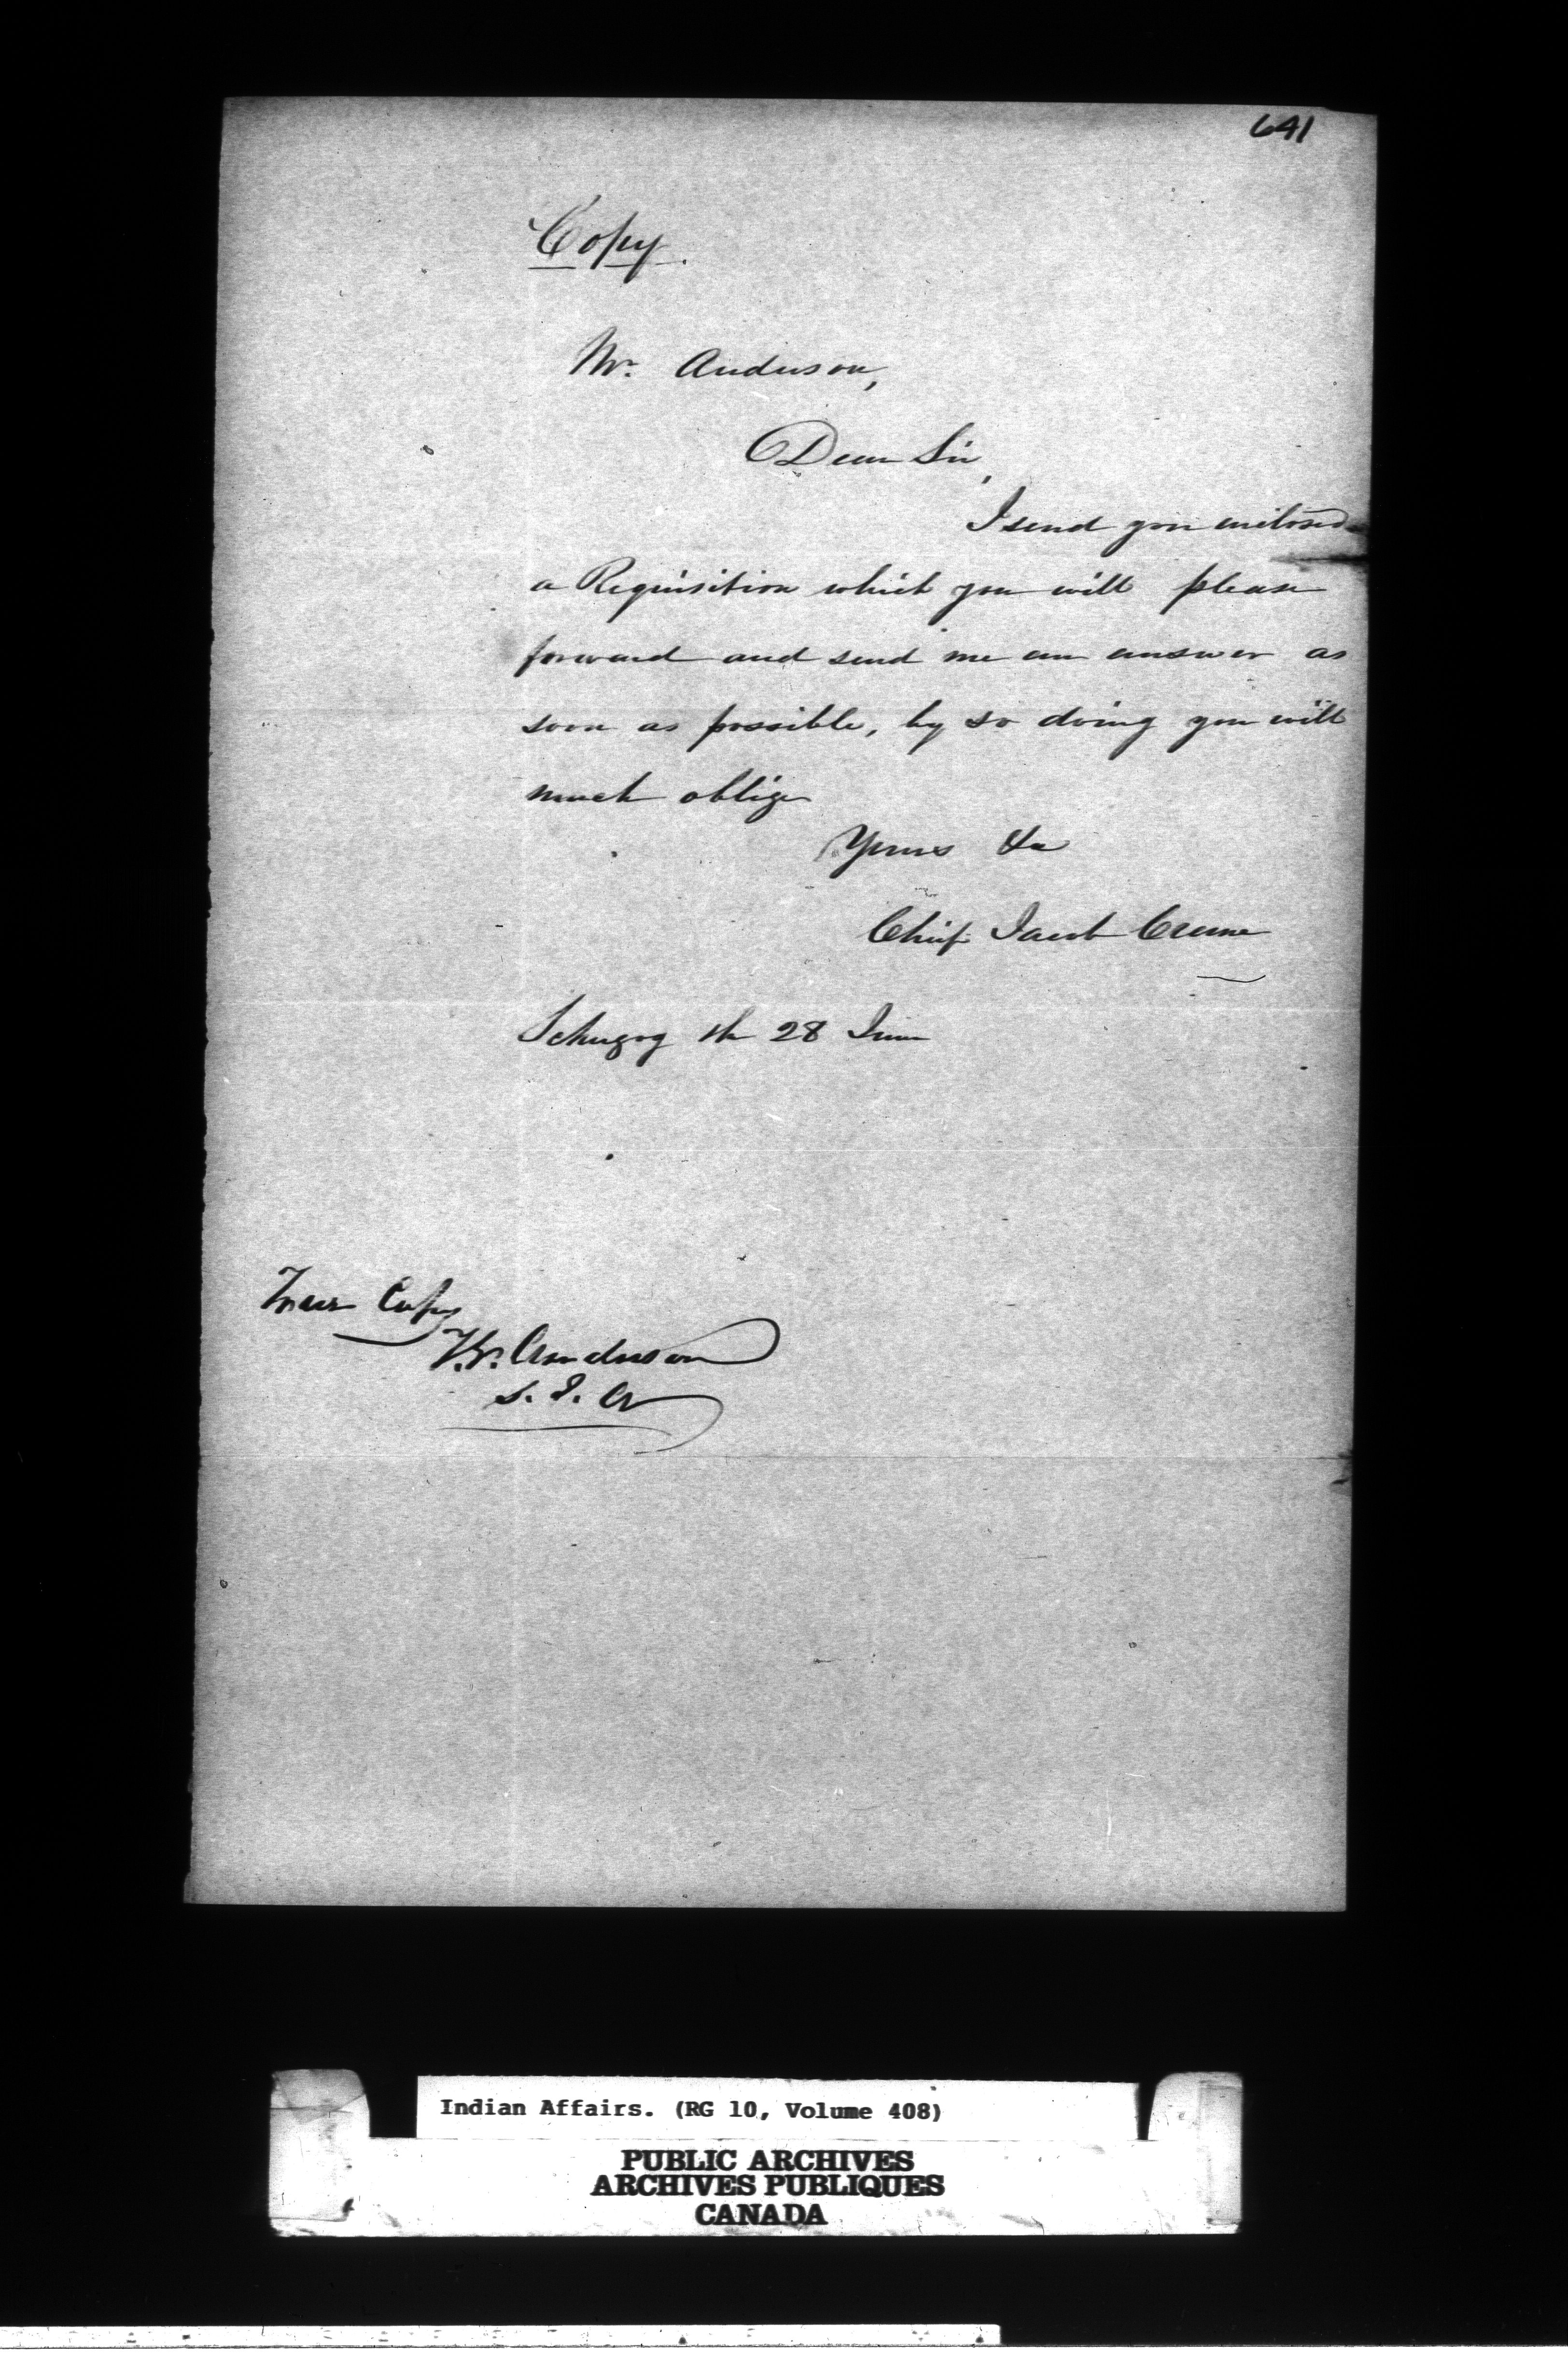 641
Copy.
Mr. Anderson,
Dear Sir,
I send you enclosed
a Requisition which you will please
forward and send me an answer as
soon as possible, by so doing you will
much oblige
Yours &c
Chief Jacob Crane
Schugog the 28 June
True Copy
T. G. Anderson
S. I. A
Indian Affairs. (RG 10, Volume 408)
PUBLIC ARCHIVES
ARCHIVES PUBLIQUES
CANADA